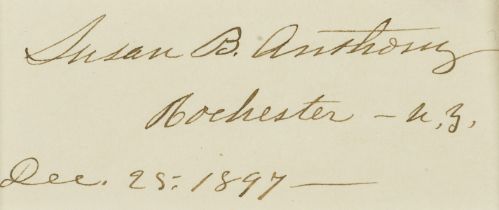 Susan B. Anthony
Rochester - N.Y.
Dec. 25. 1897 —